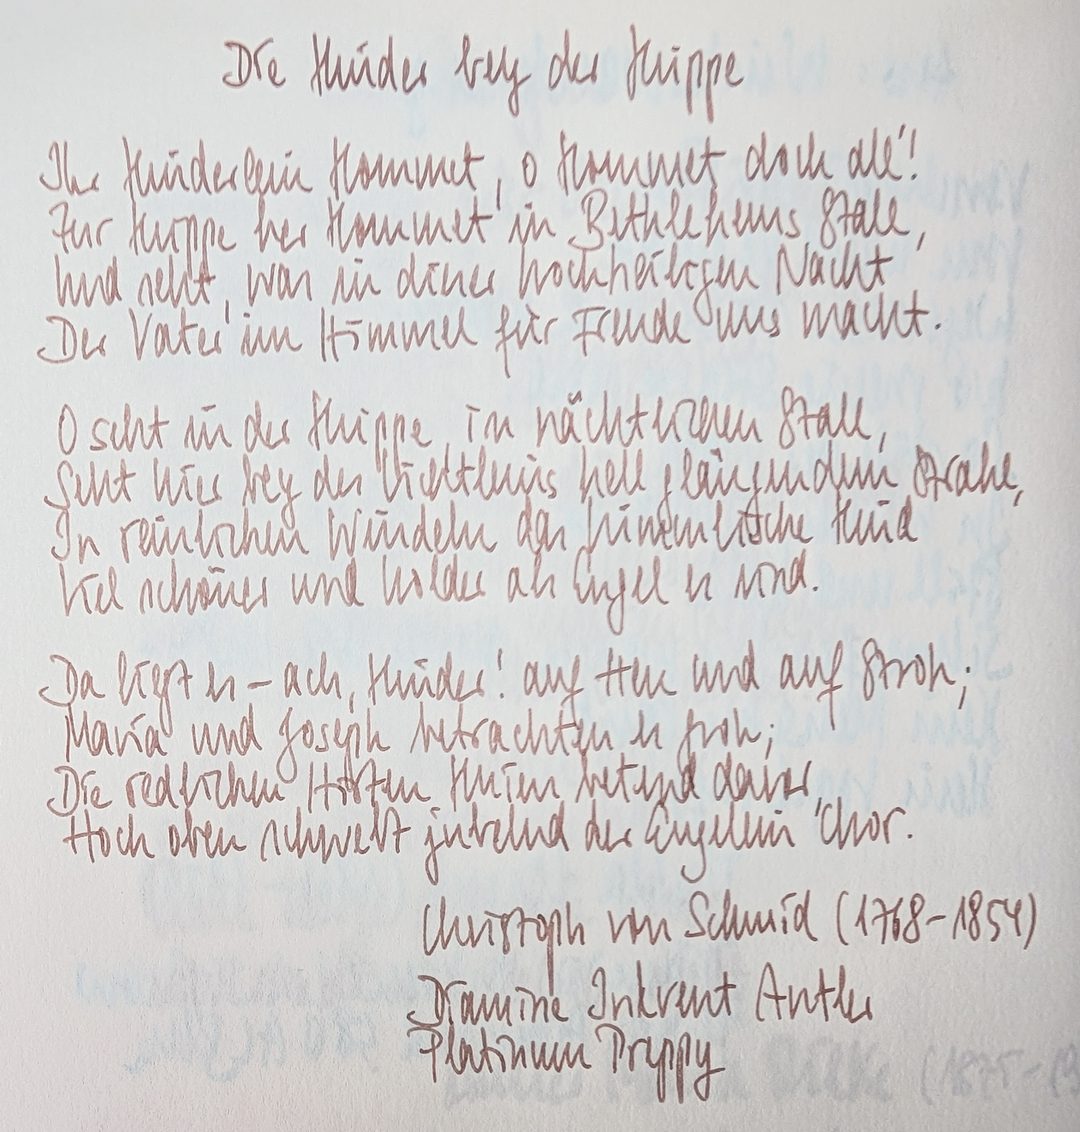 Die Kinder bey der Krippe
Ihr Kinderlein kommet, o kommet doch all'!
Zur Krippe her kommet in Bethlehems Stall,
Und seht, was in dieser hochheiligen Nacht
Der Vater im Himmel für Freude uns macht.
O seht in der Krippe, im nächtlichen Stall,
Seht hier bey des Lichtleins hell glänzendem Strahl,
In reinlichen Windeln das himmlische Kind
Viel schöner und holder als Engel es sind.
Da liegt es – ach, Kinder! auf Heu und auf Stroh;
Maria und Joseph betrachten es froh;
Die redlichen Hirten knien betend davor,
Hoch oben schwebt jubelnd der Engelein Chor.
Christoph von Schmid (1768-1854)
Diamine Inkvent Antler
Platinum Preppy